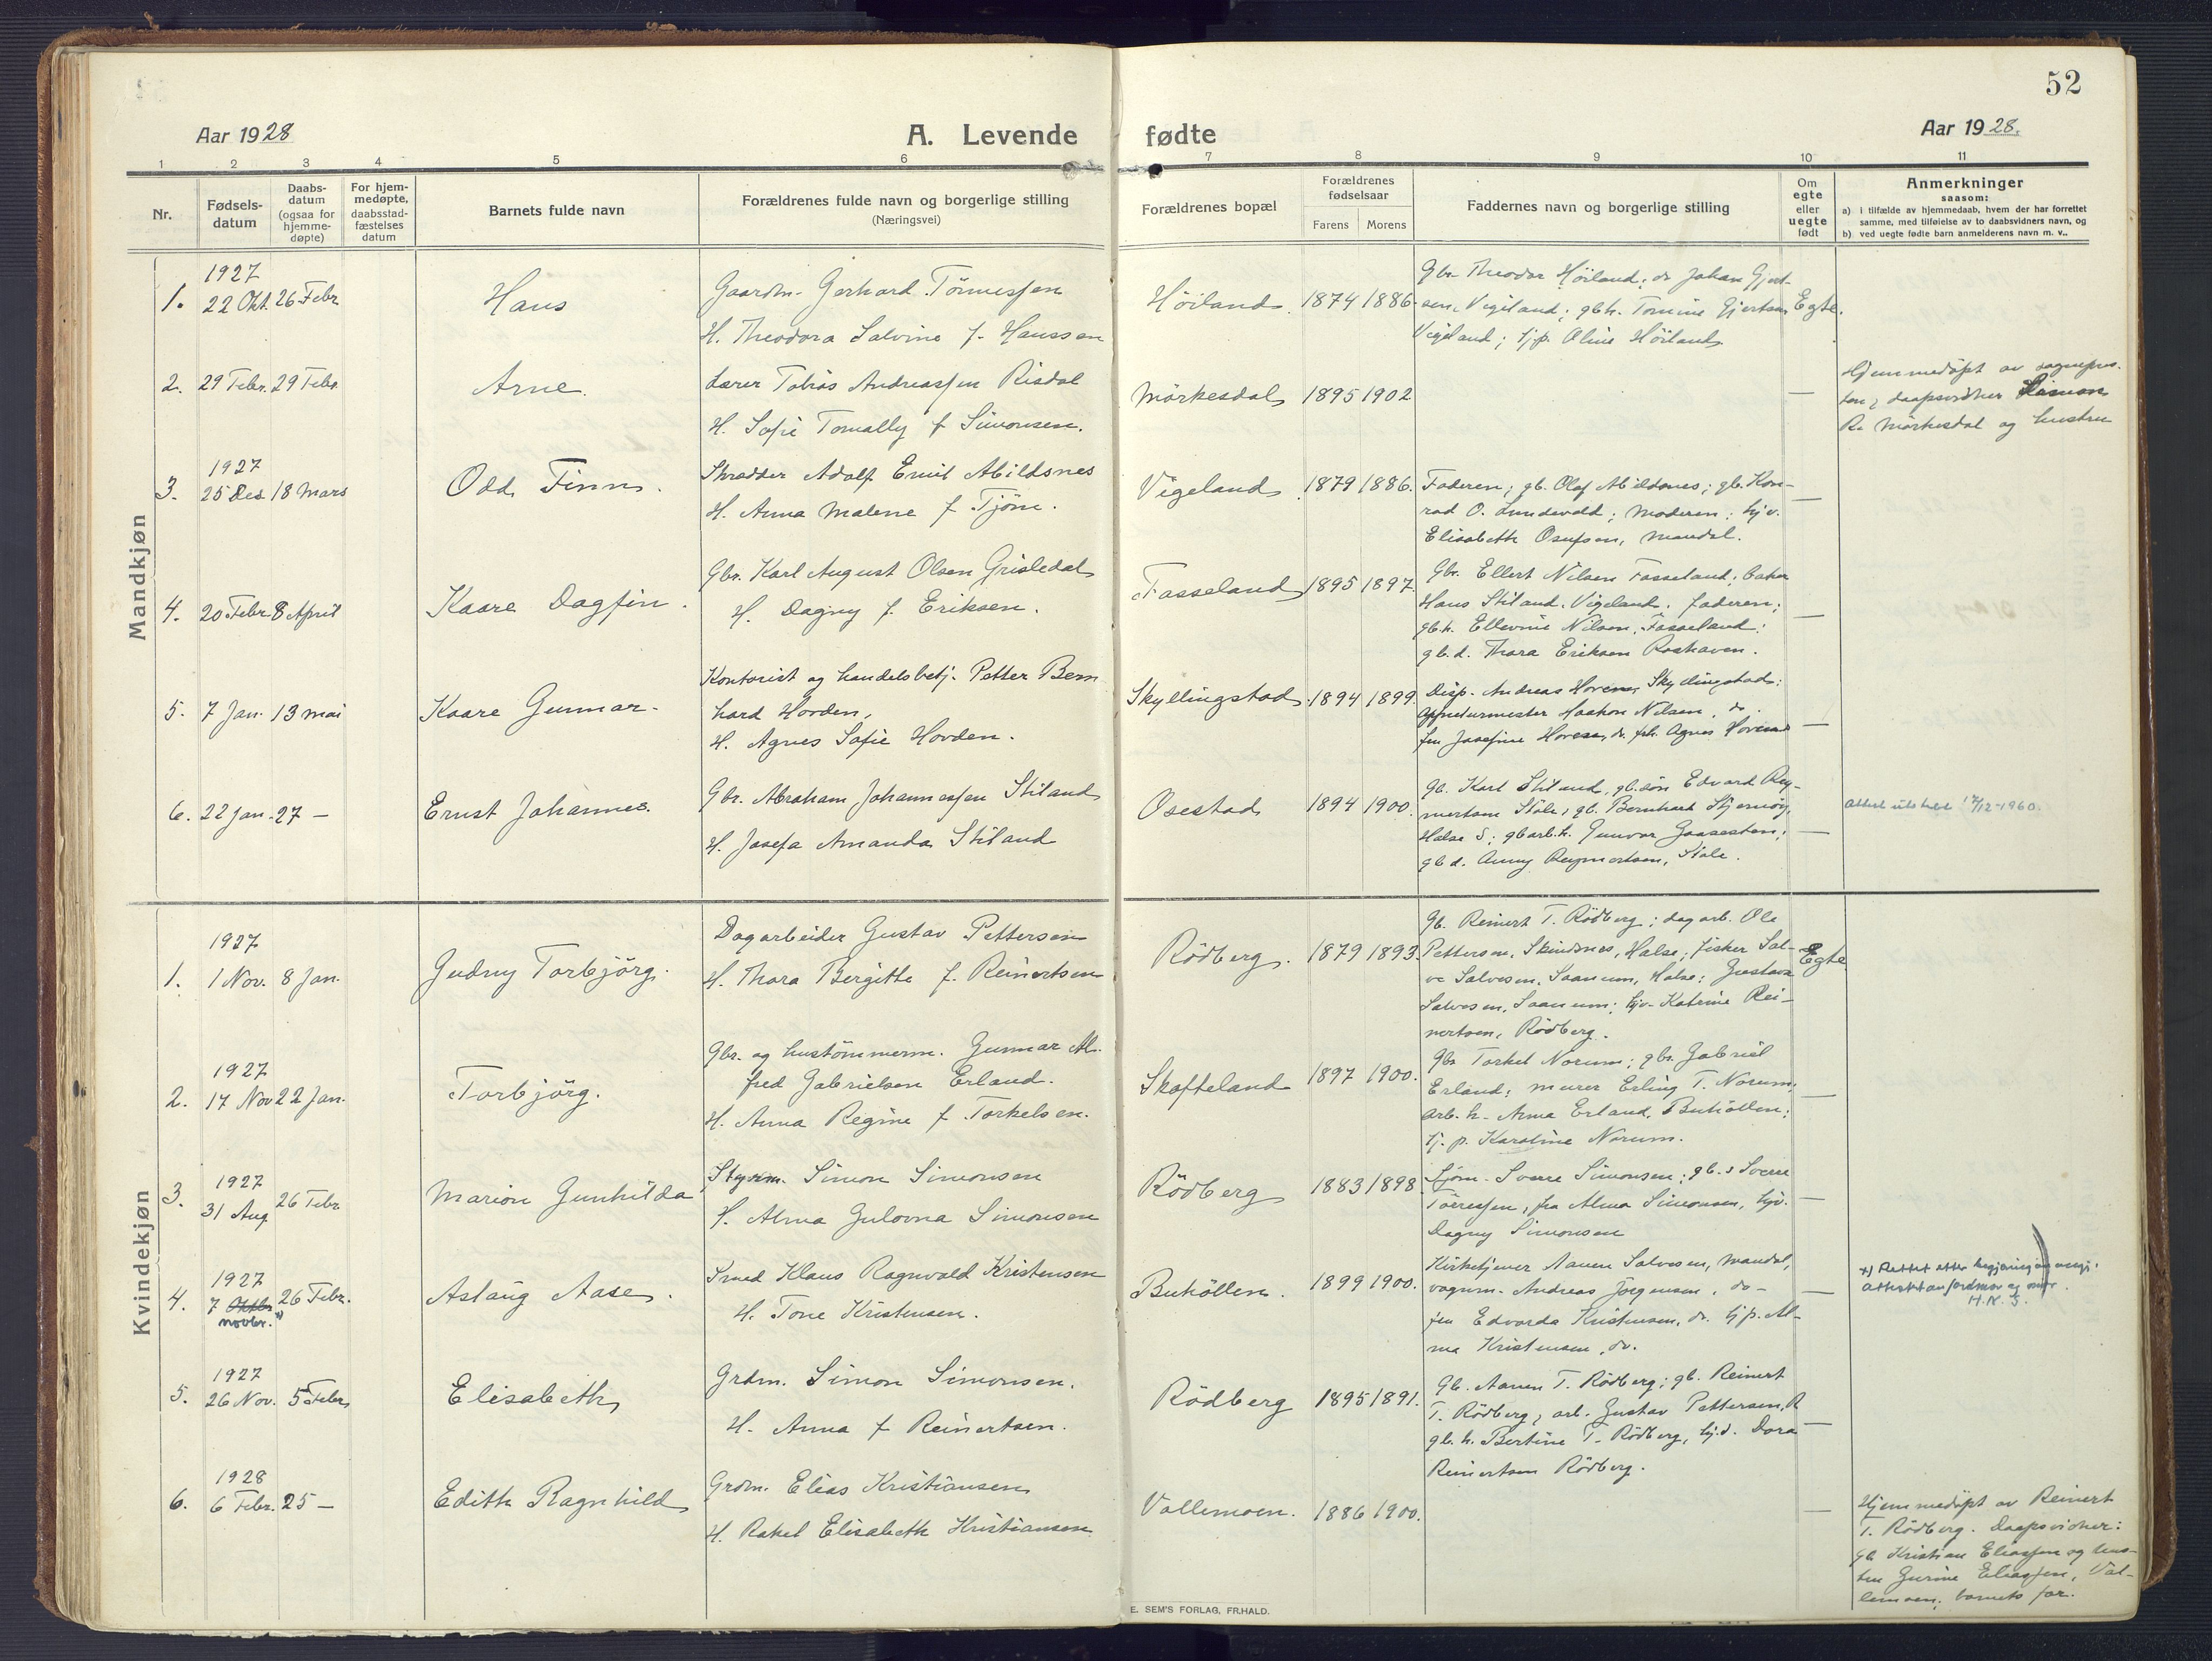 52
Aar 1928
A. Levende fødte
Aar 1928.
1 2 3 4 5 6 7 8 9 10 11
Nr.
Fødsels-
datum
Daabs-
datum
(ogsaa for
hjemme-
døpte)
For hjem-
medøpte,
daabsstad-
fæstelses
datum
Barnets fulde navn
Forældrenes fulde navn og borgerlige stilling
(Næringsvei)
Forældrenes bopæl
Forældrenes
fødselsaar
Farens Morens
Faddernes navn og borgerlige stilling
Om
egte
eller
uegte
født
Anmerkninger
saasom:
a) i tilfælde av hjemmedaab, hvem der har forrettet
samme, med tilføielse av to daabsvidners navn, og
b) ved uegte fødte barn anmelderens navn m. v..
Mandkjøn
1.
1927
22 Okt. 26 Febr
Hans
Gaardm. Gerhard Tönnessen
H. Theodora Salvine f. Hanssen
Höiland. 1874 1886.
Gbr. Theodor Höiland; do Johan Gjert-
sen, Vigeland; gbh. Tomine Gjertsen
Vigeland; tj.p. Oline Höiland
Egte.
2. 29 Febr. 29 Febr
Arne.
Lærer Tobias Andreassen Risdal
H. Sofie Tomally f Simonsen.
Mörkesdal 1895 1902
—
Hjemmedöpt av sognepres-
ten; daapsvidner
R. Mörkesdal og hustru
3.
1927
25 Des. 18 Mars
Odd Finn.
Skrædder Adolf Emil Abildsnes
H. Anna Malene f Tjöm.
Vigeland. 1879 1886.
Faderen; gb. Olaf Abildsnes; gb. Kon-
rad O. Lundevold; Moderen; tj.v.
Elisabeth Osufsen, Mandal.
—
4. 20 Febr 8 April
Kaare Dagfin.
Gbr. Karl August Olsen Grisledal
H. Dagny f. Eriksen.
Fasseland 1895 1897.
Gbr. Ellert Nilsen Fasseland; baker
Hans Stiland, Vigeland. faderen;
gb.h. Ellevine Nilsen, Fasseland;
gb.d. Thora Eriksen Roshaven.
—
5. 7 Jan. 13 mai
Kaare Gunnar.
Kontorist og handelsbetj. Petter Bern
hard Hovden,
H. Agnes Sofie Hovden.
Skyllingstad 1894 1899
Disp. Andreas Hovden, Skyllingstad;
appreturmester Haakon Nilsen, do.
fru Josefine Hovden, do. frk. Agnes Hovden
—
6. 22 Jan. 27 —
Ernst Johannes.
Gbr. Abraham Johannessen Stiland
H. Josefa Amanda Stiland
Osestad 1894 1900.
Gb. Karl Stiland, gb.sön Edvard Rey-
mertsen Stöle; gb. Bernhard
Halse S; gbarb.h. Gunvor Gaasesten;
gb d. Anny Reymertsen, Støle.
—
Attest utstedt 17/12-1960.
Kvindekjøn
1.
1927
1 Nov. 8 Jan.
Gudny Torbjörg.
Dagarbeider Gustav Pettersen
H. Thora Bergitte f. Reinertsen
Rödberg. 1879 1893
Gb. Reinert T. Rödberg; dagarb. Ole
Pettersen, Skindsnes, Halse; fisker Sal-
ve Salvesen, Saanum, Halse; Gustava
Salvesen, Saanum; tjv. Katrine Rei-
nertsen, Rödberg.
Egte
2.
1927
17 Nov 22 Jan.
Torbjörg.
Gbr. og hustömmerm. Gunnar Al-
fred Gabrielsen Erland.
H. Anna Regine f Torkelsen.
Skofteland 1897 1900.
Gbr Torkel Norum; gbr. Gabriel
Erland; murer Erling T. Norum;
arb. h. Anna Erland, Buhöllen;
tj. p. Karoline Norum.
—
3.
1927
31 Aug 26 Febr
Marion Gunhilda
Styrm. Simon Simonsen
H. Alma Gulovna Simonsen
Rödberg 1883 1898
Sjöm. Sverre Simonsen; gb. s Sverre
Törressen, fru Alma Simonsen, tjv.
Dagny Simonsen
—
4.
1927
7 Oktbr 26 Febr.
novbr. x)
Aslaug Aase.
Smed Klaus Ragnvald Kristensen
H. Tone Kristensen.
Buhöllen. 1899 1900.
Kirketjener Aanen Salvesen, Mandal,
vognm. Andreas Jörgensen, do —
fru Edvarda Kristensen, do. tj p. Al-
ma Kristensen, do.
—
x) Rettet efter begjæring
attest av jordmor og mor.
H.K.S.
5.
1927
26 Nov. 5 Febr
Elisabeth
Grdm. Simon Simonsen.
H. Anna f Reinertsen.
Rödberg 1895 1891.
Gb. Aanen T. Rödberg; gb. Reinert
T. Rödberg, arb. Gustav Pettersen, R
gb.h. Bertine T. Rödberg, tj.d. Dora
Reinertsen Rödberg.
—
6.
1928
6 Febr. 25 —
Edith Ragnhild
Grdm. Elias Kristiansen
H. Rakel Elisabeth Kristiansen
Vallemoen. 1886 1900.
—
Hjemmedöpt av Reinert
T. Rödberg. Daapsvidner:
gb Kristian Eliassen og hus-
tru Gurine Eliassen, Val-
lemoen, barnets far.
E. SEM'S FORLAG, FR.HALD.